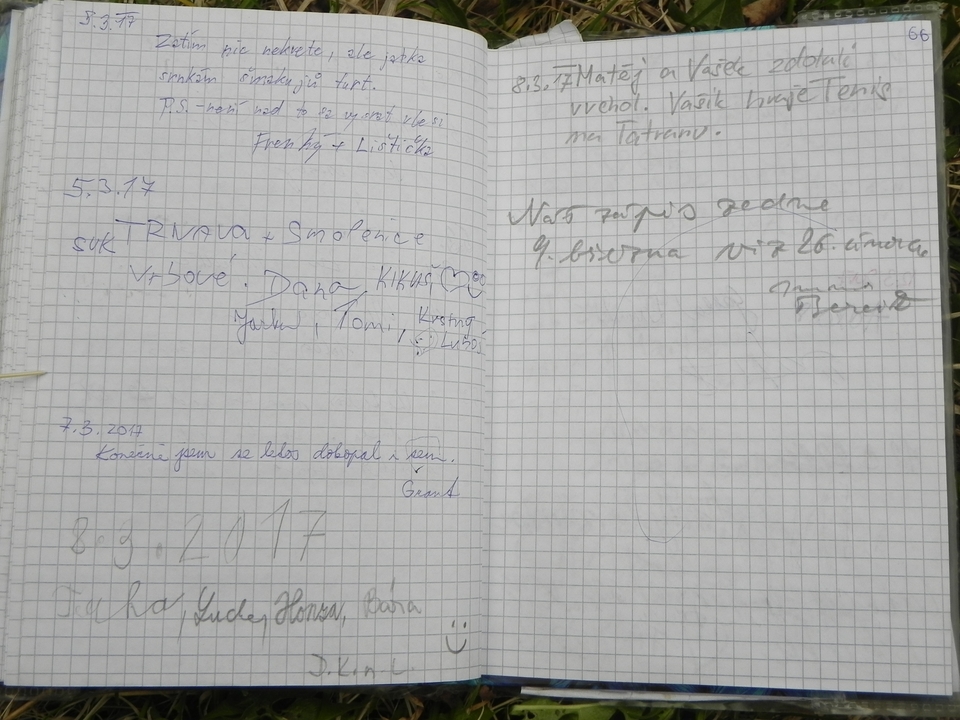 5.3.17
Zatím nic nekvete, ale jatka
srnkám šmakují furt.
P.S. - není nad to se vysrat v lese
Frenky + Lištička
5.3.17
SVK TRNAVA + Smolenice
Vrbové. Dana, KIKUŠ
Janka, Tomi, Krstný
Ľuboš
7.3.2017
Konečně jsem se letos dokopal i sem.
Grant
8.3.2017
Lucka, Honza, Bára
D.K. n L.
66
8.3.17 Matěj a Vašek zdolali
vrchol. Vašík hraje Tenis
na Tatranu.
Náš zápis ze dne
9. března viz 26. února